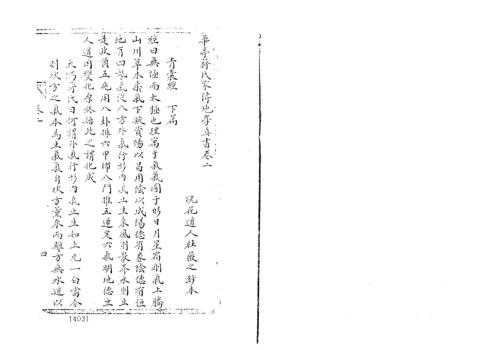 華亭蔣氏家傳地學真書卷二
浣花道人杜薇之鈔本
青囊經 下篇
經曰無極而太極也理寓于氣氣囿于形日月星宿剛氣上騰
山川草木柔氣下凝資陽以昌用陰以成陽德有象陰德有位
地有四勢氣從八方外氣行形內氣止生乘風則散界水則止
是故順五兆用八卦排六甲布八門推五運定六氣明地德立
人道因變化原終始此之謂化成
大鴻蔣氏曰何謂外氣行形內氣止生如上元一白當令
則坎方之氣本為生氣氣自坎方來而離方無水道以
卷二
四
14031